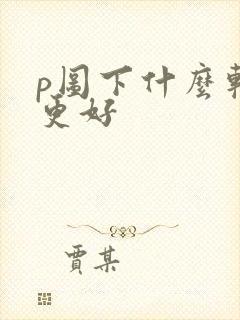 p圖下什麼軟
更好
賈某